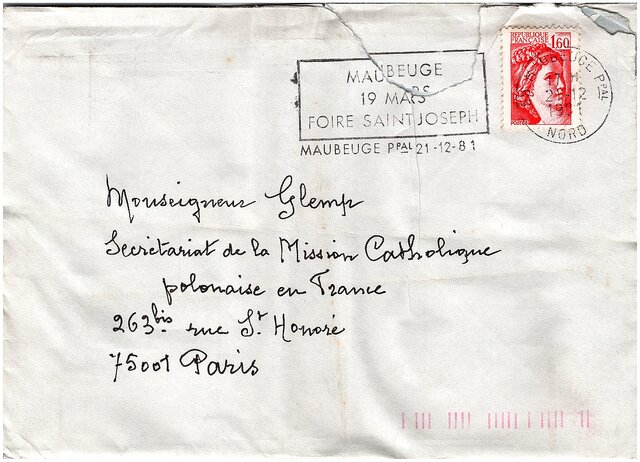 REPUBLIQUE
FRANÇAISE 1,60
MAUBEUGE
19 MARS
FOIRE SAINT JOSEPH
MAUBEUGE PPAL 21-12-81
MAUBEUGE PPAL
NORD
Monseigneur Glemp
Secrétariat de la Mission Catholique
polonaise en France
263 bis rue St Honoré
75001 Paris